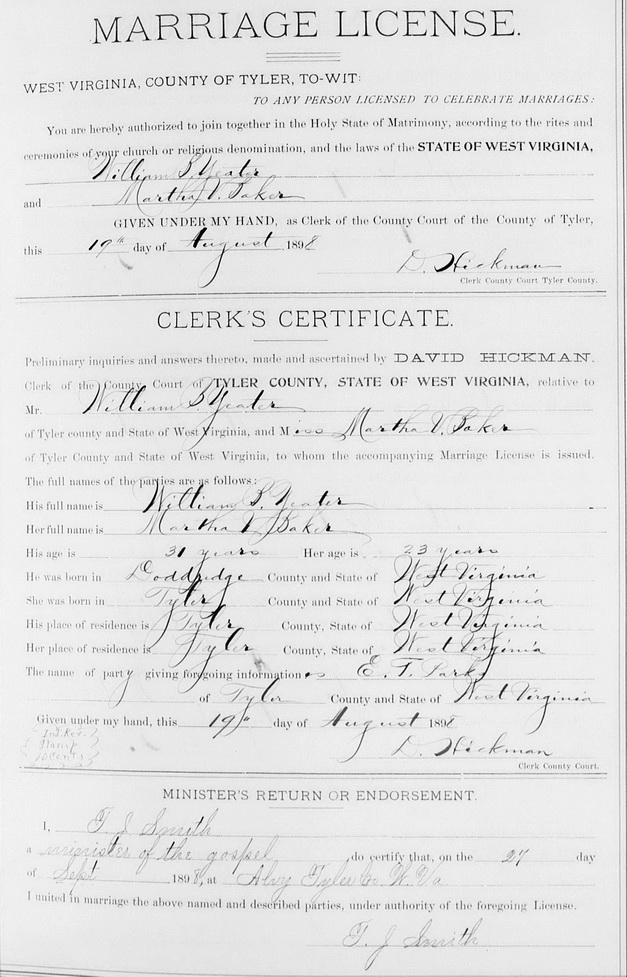 MARRIAGE LICENSE.
WEST VIRGINIA, COUNTY OF TYLER, TO-WIT:
TO ANY PERSON LICENSED TO CELEBRATE MARRIAGES:
You are hereby authorized to join together in the Holy State of Matrimony, according to the rites and
ceremonies of your church or religious denomination, and the laws of the STATE OF WEST VIRGINIA,
William B. Yeater
and Martha V. Baker
GIVEN UNDER MY HAND, as Clerk of the County Court of the County of Tyler,
this 19th day of August 1898
D. Hickman
Clerk County Court Tyler County.
CLERK'S CERTIFICATE.
Preliminary inquiries and answers thereto, made and ascertained by DAVID HICKMAN.
Clerk of the County Court of TYLER COUNTY, STATE OF WEST VIRGINIA, relative to
Mr. William B. Yeater
of Tyler county and State of West Virginia, and Miss Martha V. Baker
of Tyler County and State of West Virginia, to whom the accompanying Marriage License is issued.
The full names of the parties are as follows:
His full name is William B. Yeater
Her full name is Martha V. Baker
His age is 31 years Her age is 23 years
He was born in Doddridge County and State of West Virginia
She was born in Tyler County and State of West Virginia
His place of residence is Tyler County, State of West Virginia
Her place of residence is Tyler County, State of West Virginia
The name of party giving foregoing information is E. F. Parks
of Tyler County and State of West Virginia
Given under my hand, this 19th day of August 1898
Int. Rev.
Stamp
10 cents
D. Hickman
Clerk County Court.
MINISTER'S RETURN OR ENDORSEMENT.
I, T. J. Smith
a minister of the gospel do certify that, on the 27 day
of Sept 1898, at Alvy Tyler Co W. Va
I united in marriage the above named and described parties, under authority of the foregoing License.
T. J. Smith